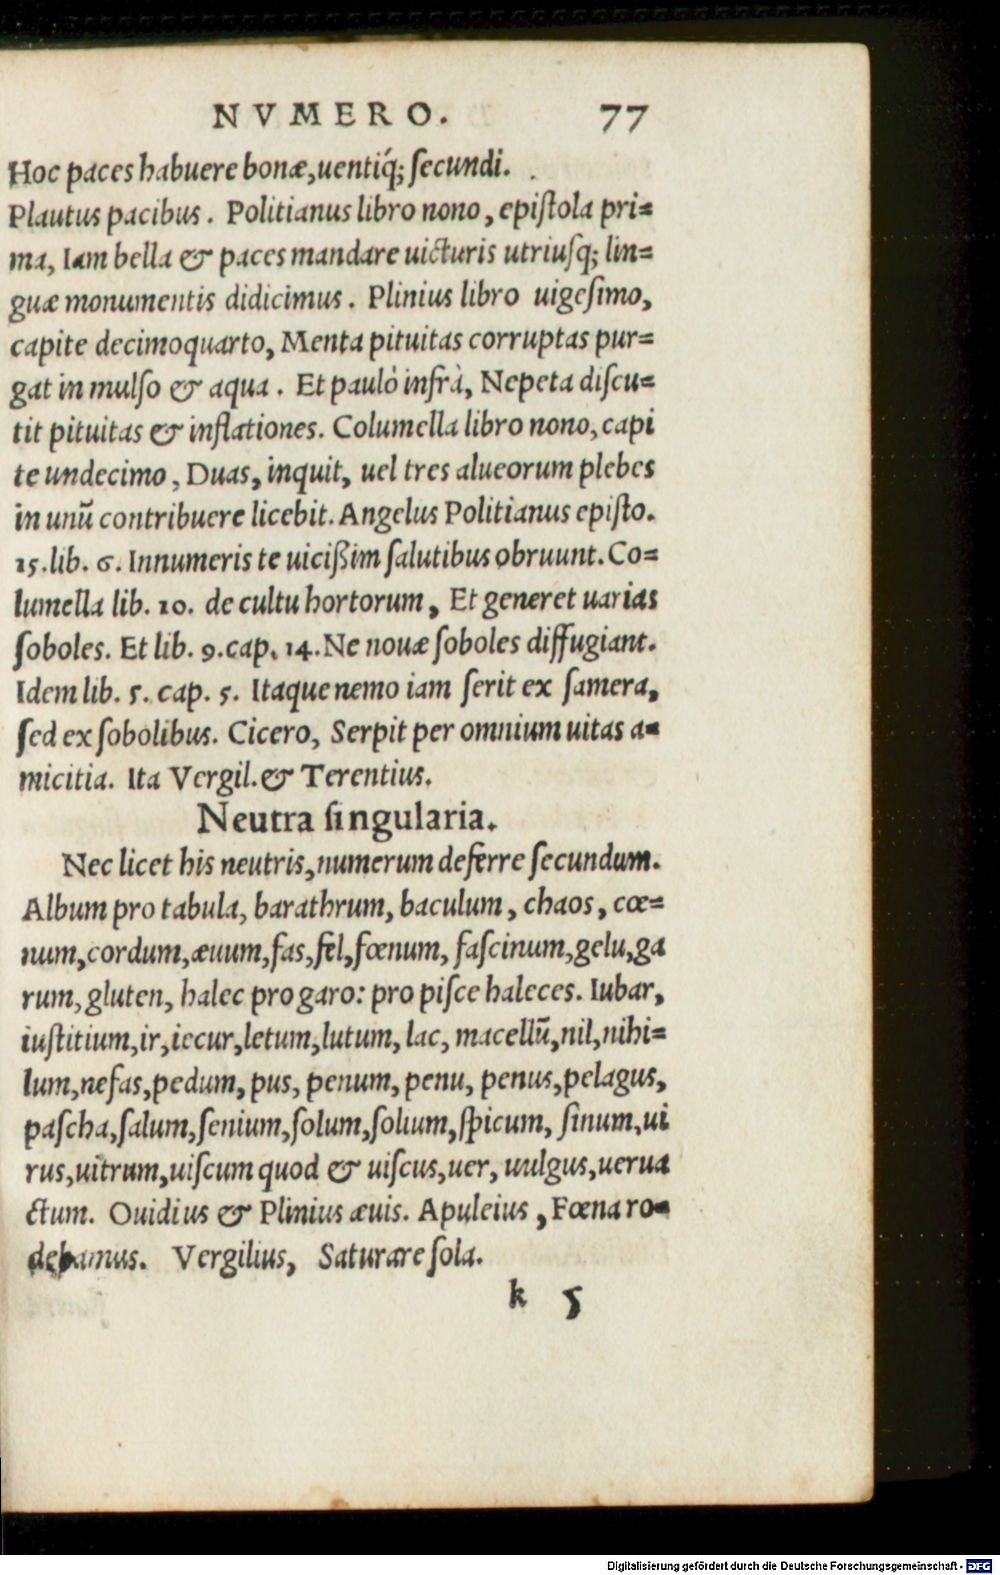 NVMERO. 77
Hoc paces habuere bonæ,uentiq́; ſecundi.
Plautus pacibus. Politianus libro nono, epiſtola pri=
ma, Iam bella & paces mandare uicturis utriuſq; lin=
guæ monumentis didicimus. Plinius libro uigeſimo,
capite decimoquarto, Menta pituitas corruptas pur=
gat in mulſo & aqua. Et paulò infrà, Nepeta diſcu=
tit pituitas & inflationes. Columella libro nono, capi
te undecimo, Duas, inquit, uel tres alueorum plebes
in unũ contribuere licebit. Angelus Politianus epiſto.
15.lib. 6. Innumeris te uicißim ſalutibus obruunt. Co=
lumella lib. 10. de cultu hortorum, Et generet uarias
ſoboles. Et lib. 9.cap. 14.Ne nouæ ſoboles diffugiant.
Idem lib. 5. cap. 5. Itaque nemo iam ſerit ex ſamera,
ſed ex ſobolibus. Cicero, Serpit per omnium uitas a=
micitia. Ita Vergil. & Terentius.
Neutra ſingularia.
Nec licet his neutris,numerum deferre ſecundum.
Album pro tabula, barathrum, baculum, chaos, cœ=
num,cordum,æuum,fas,fel,fœnum, faſcinum,gelu,ga
rum, gluten, halec pro garo: pro piſce haleces. Iubar,
iuſtitium,ir,iecur,letum,lutum, lac, macellũ,nil,nihi=
lum,nefas,pedum, pus, penum, penu, penus,pelagus,
paſcha,ſalum,ſenium,ſolum,ſolium,ſpicum, ſinum,ui
rus,uitrum,uiſcum quod & uiſcus,uer, uulgus,uerua
ctum. Ouidius & Plinius æuis. Apuleius, Fœna ro=
debamus. Vergilius, Saturare ſola.
k 5
Digitalisierung gefördert durch die Deutsche Forschungsgemeinschaft - DFG